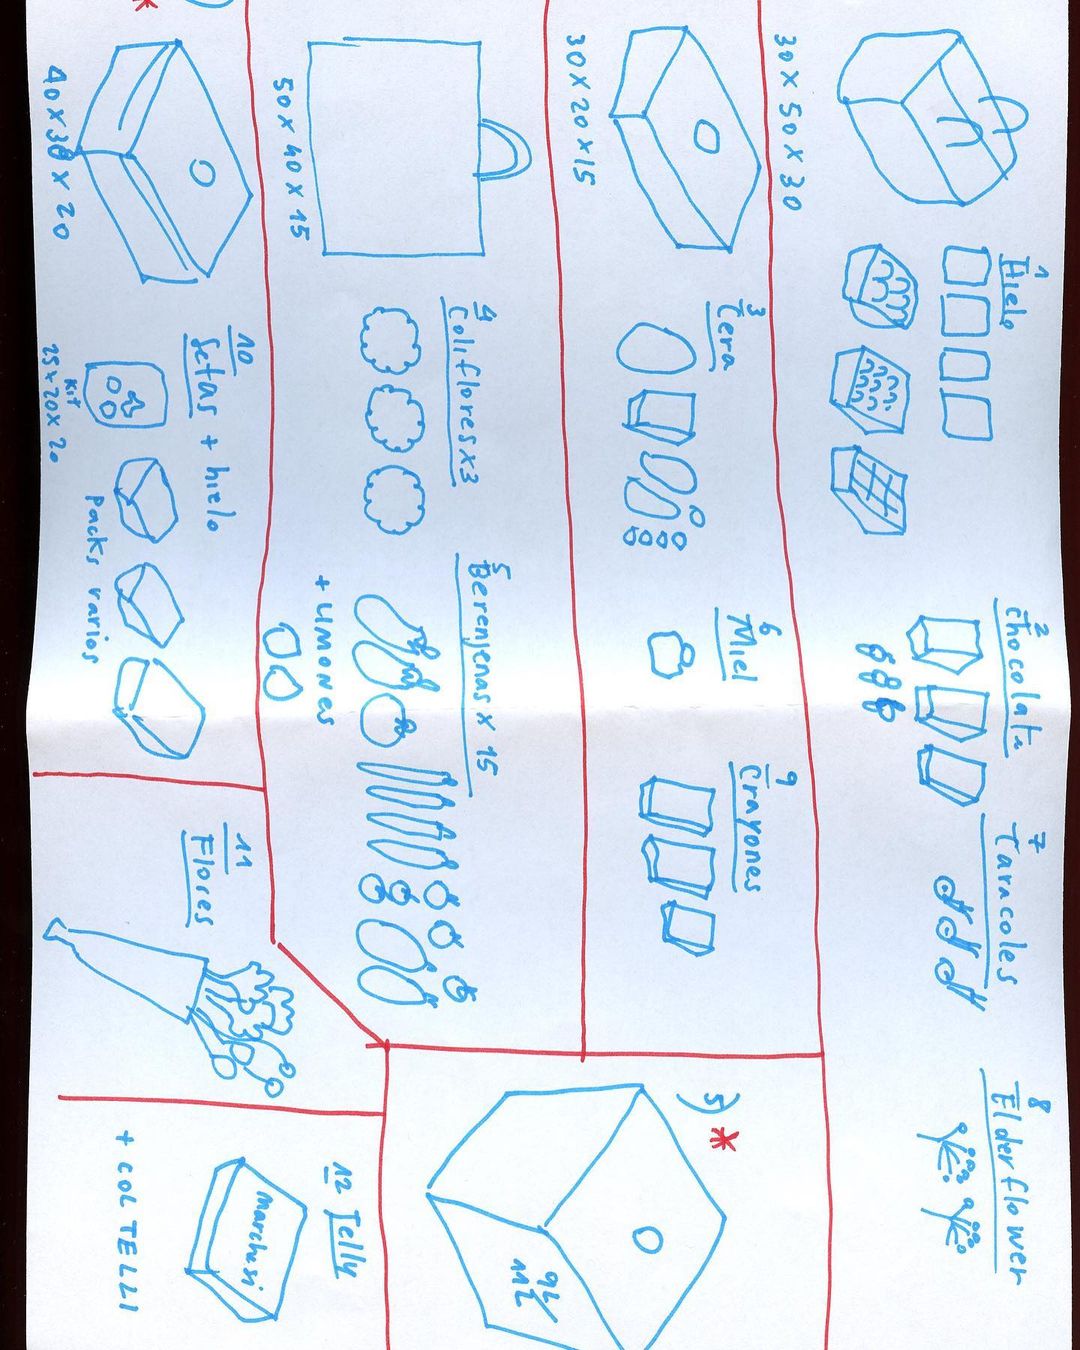 1
Hielo
2
chocolate
7
Caracoles
8
Elderflower
30 x 50 x 30
3
Cera
6
Miel
9
Crayones
30 x 20 x 15
5) *
4
Coliflores x3
5
Berenjenas x 15
+ LIMONES
50 x 40 x 15
10
Setas + hielo
Kit
25 x 20 x 20
Packs varios
40 x 30 x 20
*
11
Flores
12 Jelly
marchesi
+ COLTELLI